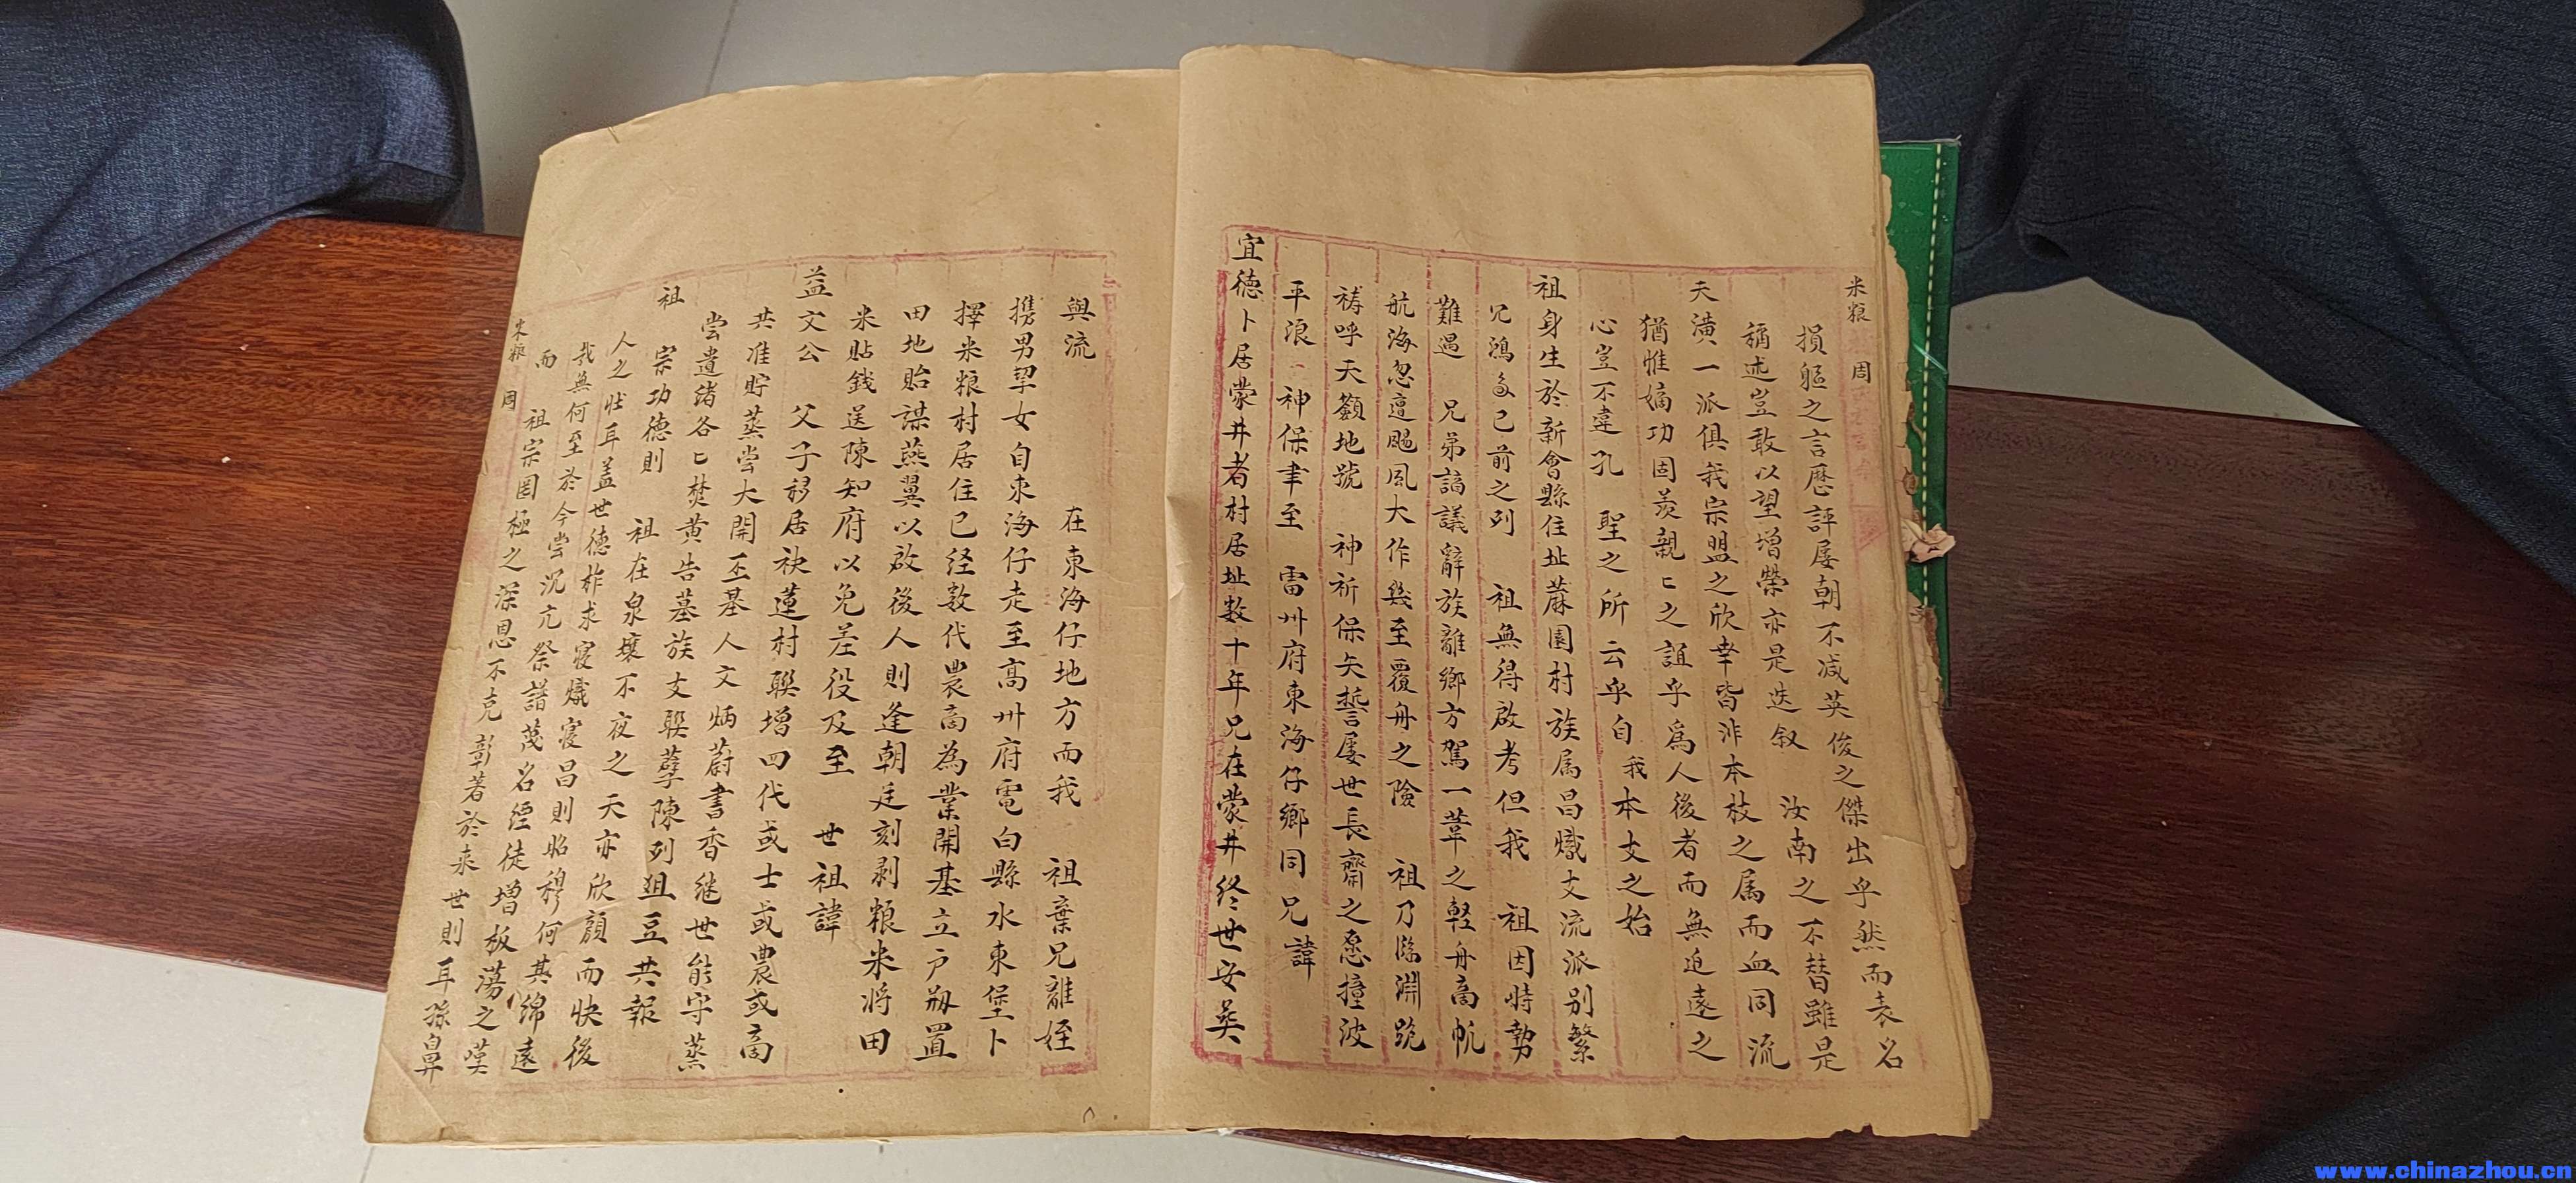 米粮 周
損軀之言歷評屡朝不減英俊之傑出乎然而表名
稱述豈敢以望增榮亦是迭叙 汝南之不替雖是
天潢一派俱我宗盟之欣幸皆非本枝之属而血同流
猶惟嫡功固羨親匕之誼乎爲人後者而無追遠之
心豈不違孔 聖之所云乎自我本支之始
祖身生於新會縣住址蔴園村族属昌熾支流派别繁
兄鴻 已前之列 祖無得啟考但我 祖因時勢
難過 兄弟謫議辭族離鄉方駕一葦之輕舟高帆
航海忽遭颺風大作幾至覆舟之險 祖乃臨淵號
禱呼天籲地號 神祈保矢誓屡世長齋之愿撞波
平浪 神保聿至 雷州府東海仔鄉同兄諱
宜德卜居蒙井者村居址数十年兄在蒙井終世安𦵏
與流 在東海仔地方而我 祖棄兄離姪
携男挈女自東海仔走至高州府電白縣水東堡卜
擇米粮村居住已经数代農商為業開基立戶剏置
田地貽謀燕翼以啟後人則逢朝廷刻剥粮米将田
米貼錢送陳知府以免差役及至 世祖諱
益文公 父子移居袂蓮村聨增四代或士或農或商
共准貯蒸嘗大開丕基人文炳蔚書香继世能守蒸
嘗遺緒各匕焚黄告墓族支聨 陳列俎豆共報
祖 宗功德則 祖在泉壤不夜之天亦欣顔而快後
人之壯耳蓋世德柞求寝熾寝昌則昭穆何其绵遠
我無何至於今嘗沉亢祭譜蔑名經徒增板蕩之嘆
而 祖宗罔極之深恩不克彰著於来世則耳孫鼻
米粮 周
www.chinazhou.cn